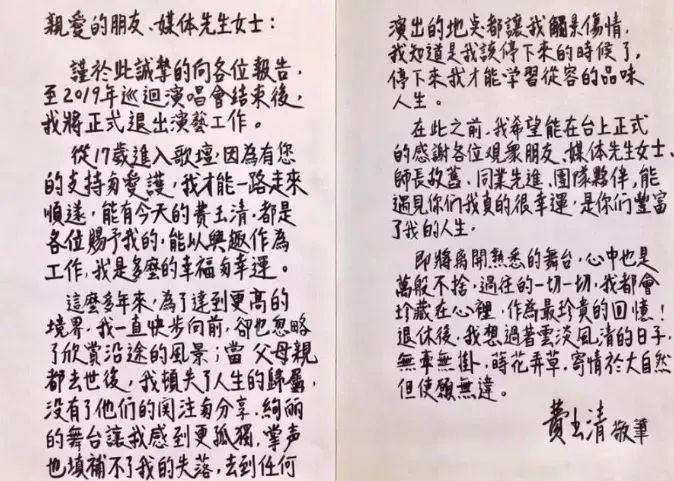 親愛的朋友、媒体先生女士：
謹於此誠摯的向各位報告，
至2019年巡迴演唱會结束後，
我將正式退出演藝工作。
從17歲進入歌壇，因為有您
的支持匀愛護，我才能一路走來
順遂，能有今天的費玉清，都是
各位賜予我的，能以興趣作為
工作，我是多麼的幸福匀幸運。
這麼多年來，為了達到更高的
境界，我一直快步向前，卻也忽略
了欣賞沿途的風景；當父母親
都去世後，我頓失了人生的歸屬，
没有了他們的関注匀分享，絢麗
的舞台讓我感到更孤獨，掌声
也填補不了我的失落，去到任何
演出的地點都讓我觸景傷情，
我知道是我該停下來的時候了，
停下來我才能学習從容的品味
人生。
在此之前，我希望能在台上正式
的感謝各位观衆朋友、媒体先生女士、
師長故舊、同業先進、團隊夥伴，能
遇見你們我真的很幸運，是你們豐富
了我的人生。
即將离開熟悉的舞台，心中也是
萬般不捨，過往的一切一切，我都會
珍藏在心裡，作為最珍貴的回憶！
退休後，我想過著雲淡風清的日子，
無牽無掛，蒔花弄草，寄情於大自然
但使願無違。
費玉清 敬筆